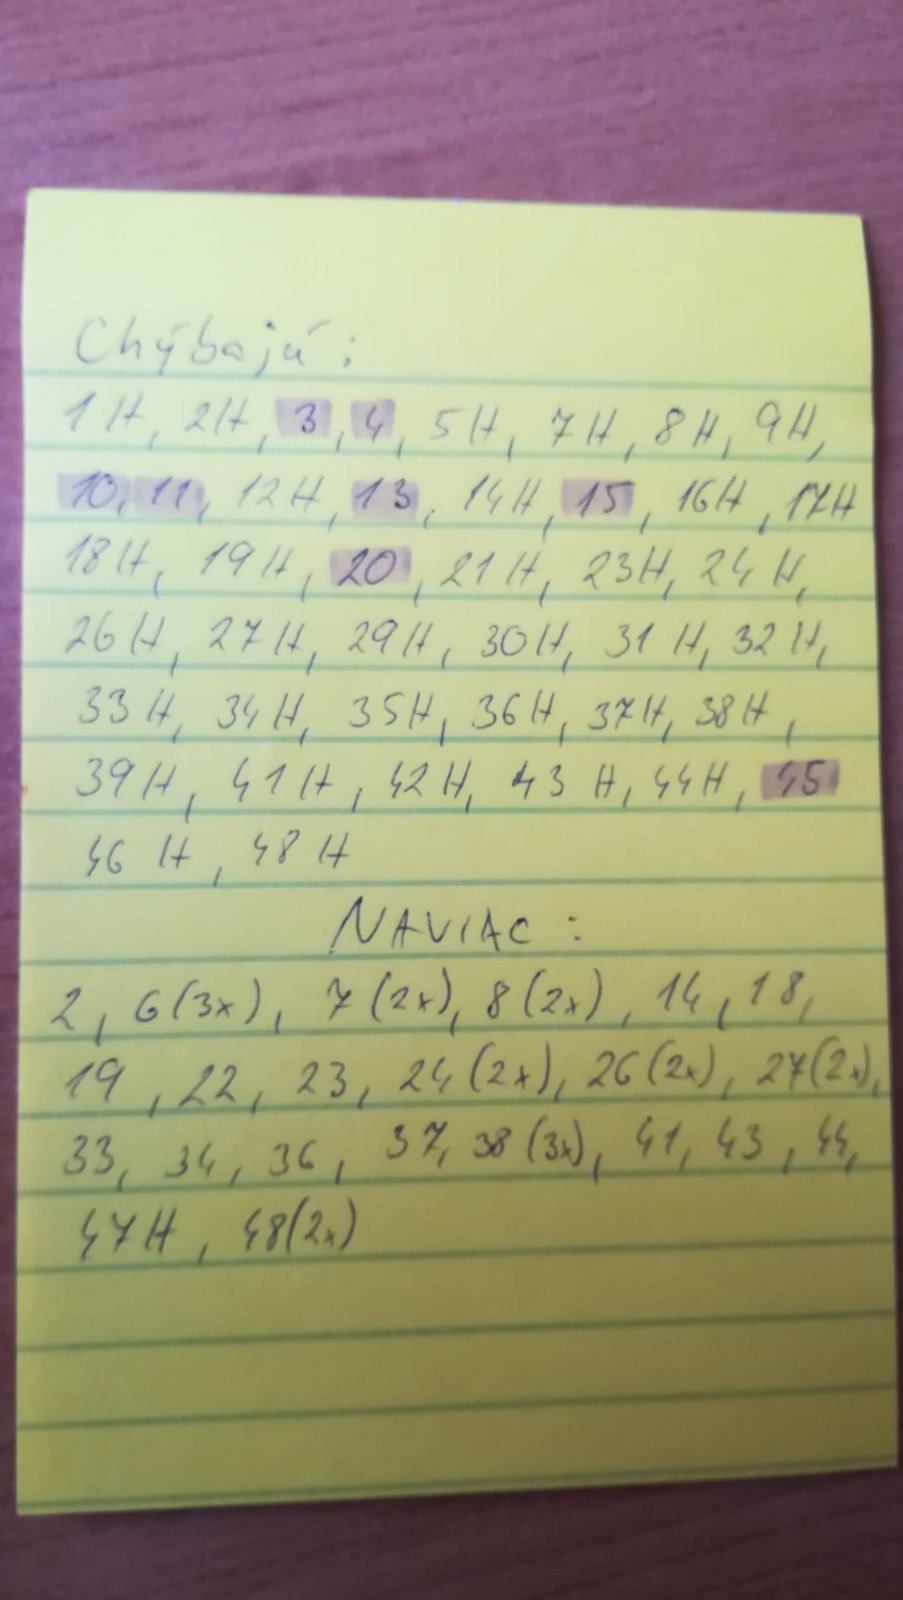 Chýbajú:
1H, 2H, 3, 4, 5H, 7H, 8H, 9H,
10, 11, 12H, 13, 14H, 15, 16H, 17H
18H, 19H, 20, 21H, 23H, 24H,
26H, 27H, 29H, 30H, 31H, 32H,
33H, 34H, 35H, 36H, 37H, 38H,
39H, 41H, 42H, 43H, 44H, 45
46H, 48H
NAVIAC:
2, 6(3x), 7(2x), 8(2x), 14, 18,
19, 22, 23, 24(2x), 26(2x), 27(2x),
33, 34, 36, 37, 38(3x), 41, 43, 44,
47H, 48(2x)